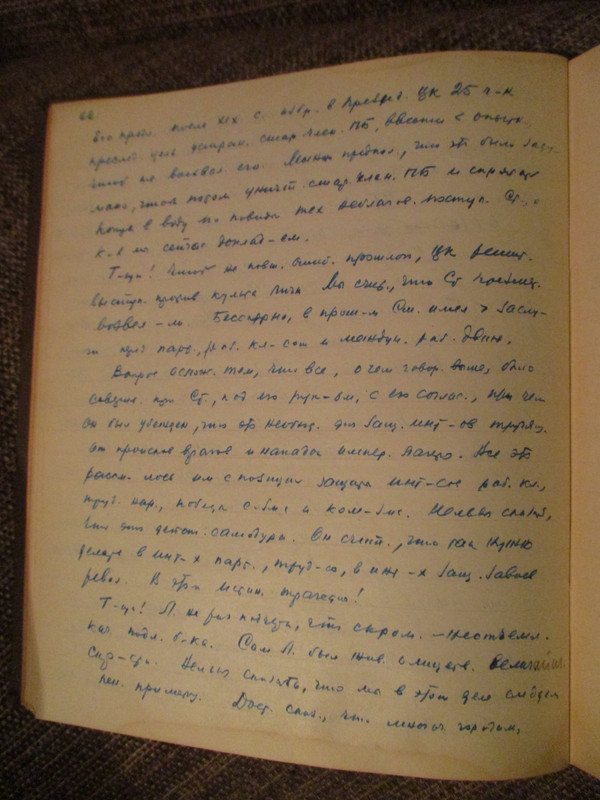 66
Его предл. после XIX с. избр. в Президиум ЦК 25 ч-к
преслед. цель устран. стар. член. ПБ, ввести
чтоб не восхвал. его. Можно предпол., что это было заду-
мано, чтоб потом уничт. стар. член. ПБ и спрятать
концы в воду по поводу тех неблагов. поступ. Ст., о
к-х мы сейчас доклад-ем.
Т-щи! Чтоб не повт. ошиб. прошлого, ЦК решит.
выступ. против культа личн. Мы счит., что Ст. чрезмер.
возвел-ли. Бесспорно, в прош-м Ст. имел > заслу-
ги пред парт., раб. кл-сом и междун. раб. движ.
Вопрос ослож. тем, что все, о чем говор. выше, было
соверш. при Ст., под его рук-ом, с его соглас., при чем
он был убежден, что это необход. для защ. инт-ов трудящ.
от происков врагов и нападок империал. лагеря. Все это
рассм-лось им с позиции защиты инт-сов раб. кл.,
труд. нар., победы с-зма и ком-зма. Нельзя сказать,
что это действ. самодура. Он счит., что так нужно
делать в инт-х парт., труд-ся, в инт-х защ. завоев.
револ. В этом истин. трагедия!
Т-щи! Л. не раз подчерк., что скром. - неотъемл.
кач. подл. б-ка. Сам Л. был жив. олицетв. величайш.
скр-сти. Нельзя сказать, что мы в этом деле следуем
лен. примеру. Дост. сказ., что многим городам,